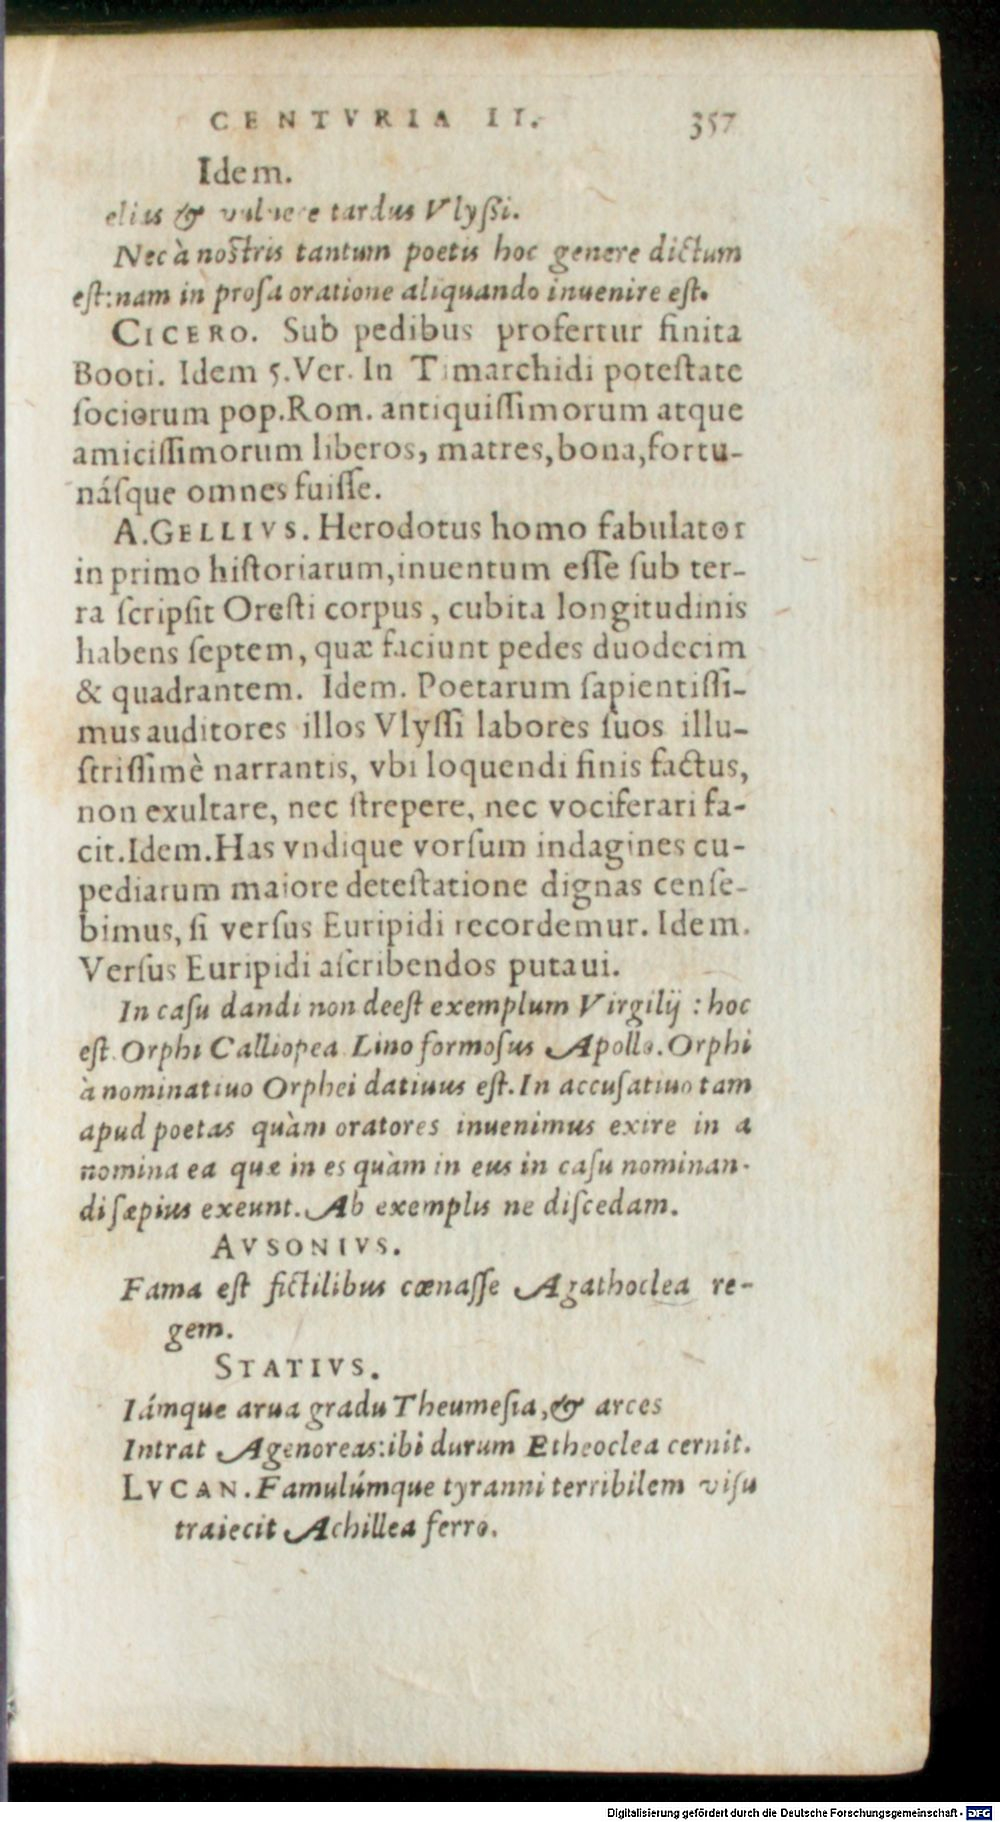 CENTVRIA II. 357
Idem.
elius & vulnere tardus Vlyßi.
Nec à nostris tantum poetis hoc genere dictum
est: nam in prosa oratione aliquando inuenire est.
CICERO. Sub pedibus profertur finita
Booti. Idem 5. Ver. In Timarchidi potestate
sociorum pop. Rom. antiquissimorum atque
amicissimorum liberos, matres, bona, fortu-
násque omnes fuisse.
A. GELLIVS. Herodotus homo fabulator
in primo historiarum, inuentum esse sub ter-
ra scripsit Oresti corpus, cubita longitudinis
habens septem, quæ faciunt pedes duodecim
& quadrantem. Idem. Poetarum sapientissi-
mus auditores illos Vlyssi labores suos illu-
strissimè narrantis, vbi loquendi finis factus,
non exultare, nec strepere, nec vociferari fa-
cit. Idem. Has vndique vorsum indagines cu-
pediarum maiore detestatione dignas cense-
bimus, si versus Euripidi recordemur. Idem.
Versus Euripidi ascribendos putaui.
In casu dandi non deest exemplum Virgilij: hoc
est. Orphi Calliopea Lino formosus Apollo. Orphi
à nominatiuo Orphei datiuus est. In accusatiuo tam
apud poetas quàm oratores inuenimus exire in a
nomina ea quæ in es quàm in eus in casu nominan-
di sæpius exeunt. Ab exemplis ne discedam.
AVSONIVS.
Fama est fictilibus cœnasse Agathoclea re-
gem.
STATIVS.
Iámque arua gradu Theumesia, & arces
Intrat Agenoreas: ibi durum Etheoclea cernit.
LVCAN. Famulúmque tyranni terribilem visu
traiecit Achillea ferro.
Digitalisierung gefördert durch die Deutsche Forschungsgemeinschaft - DFG